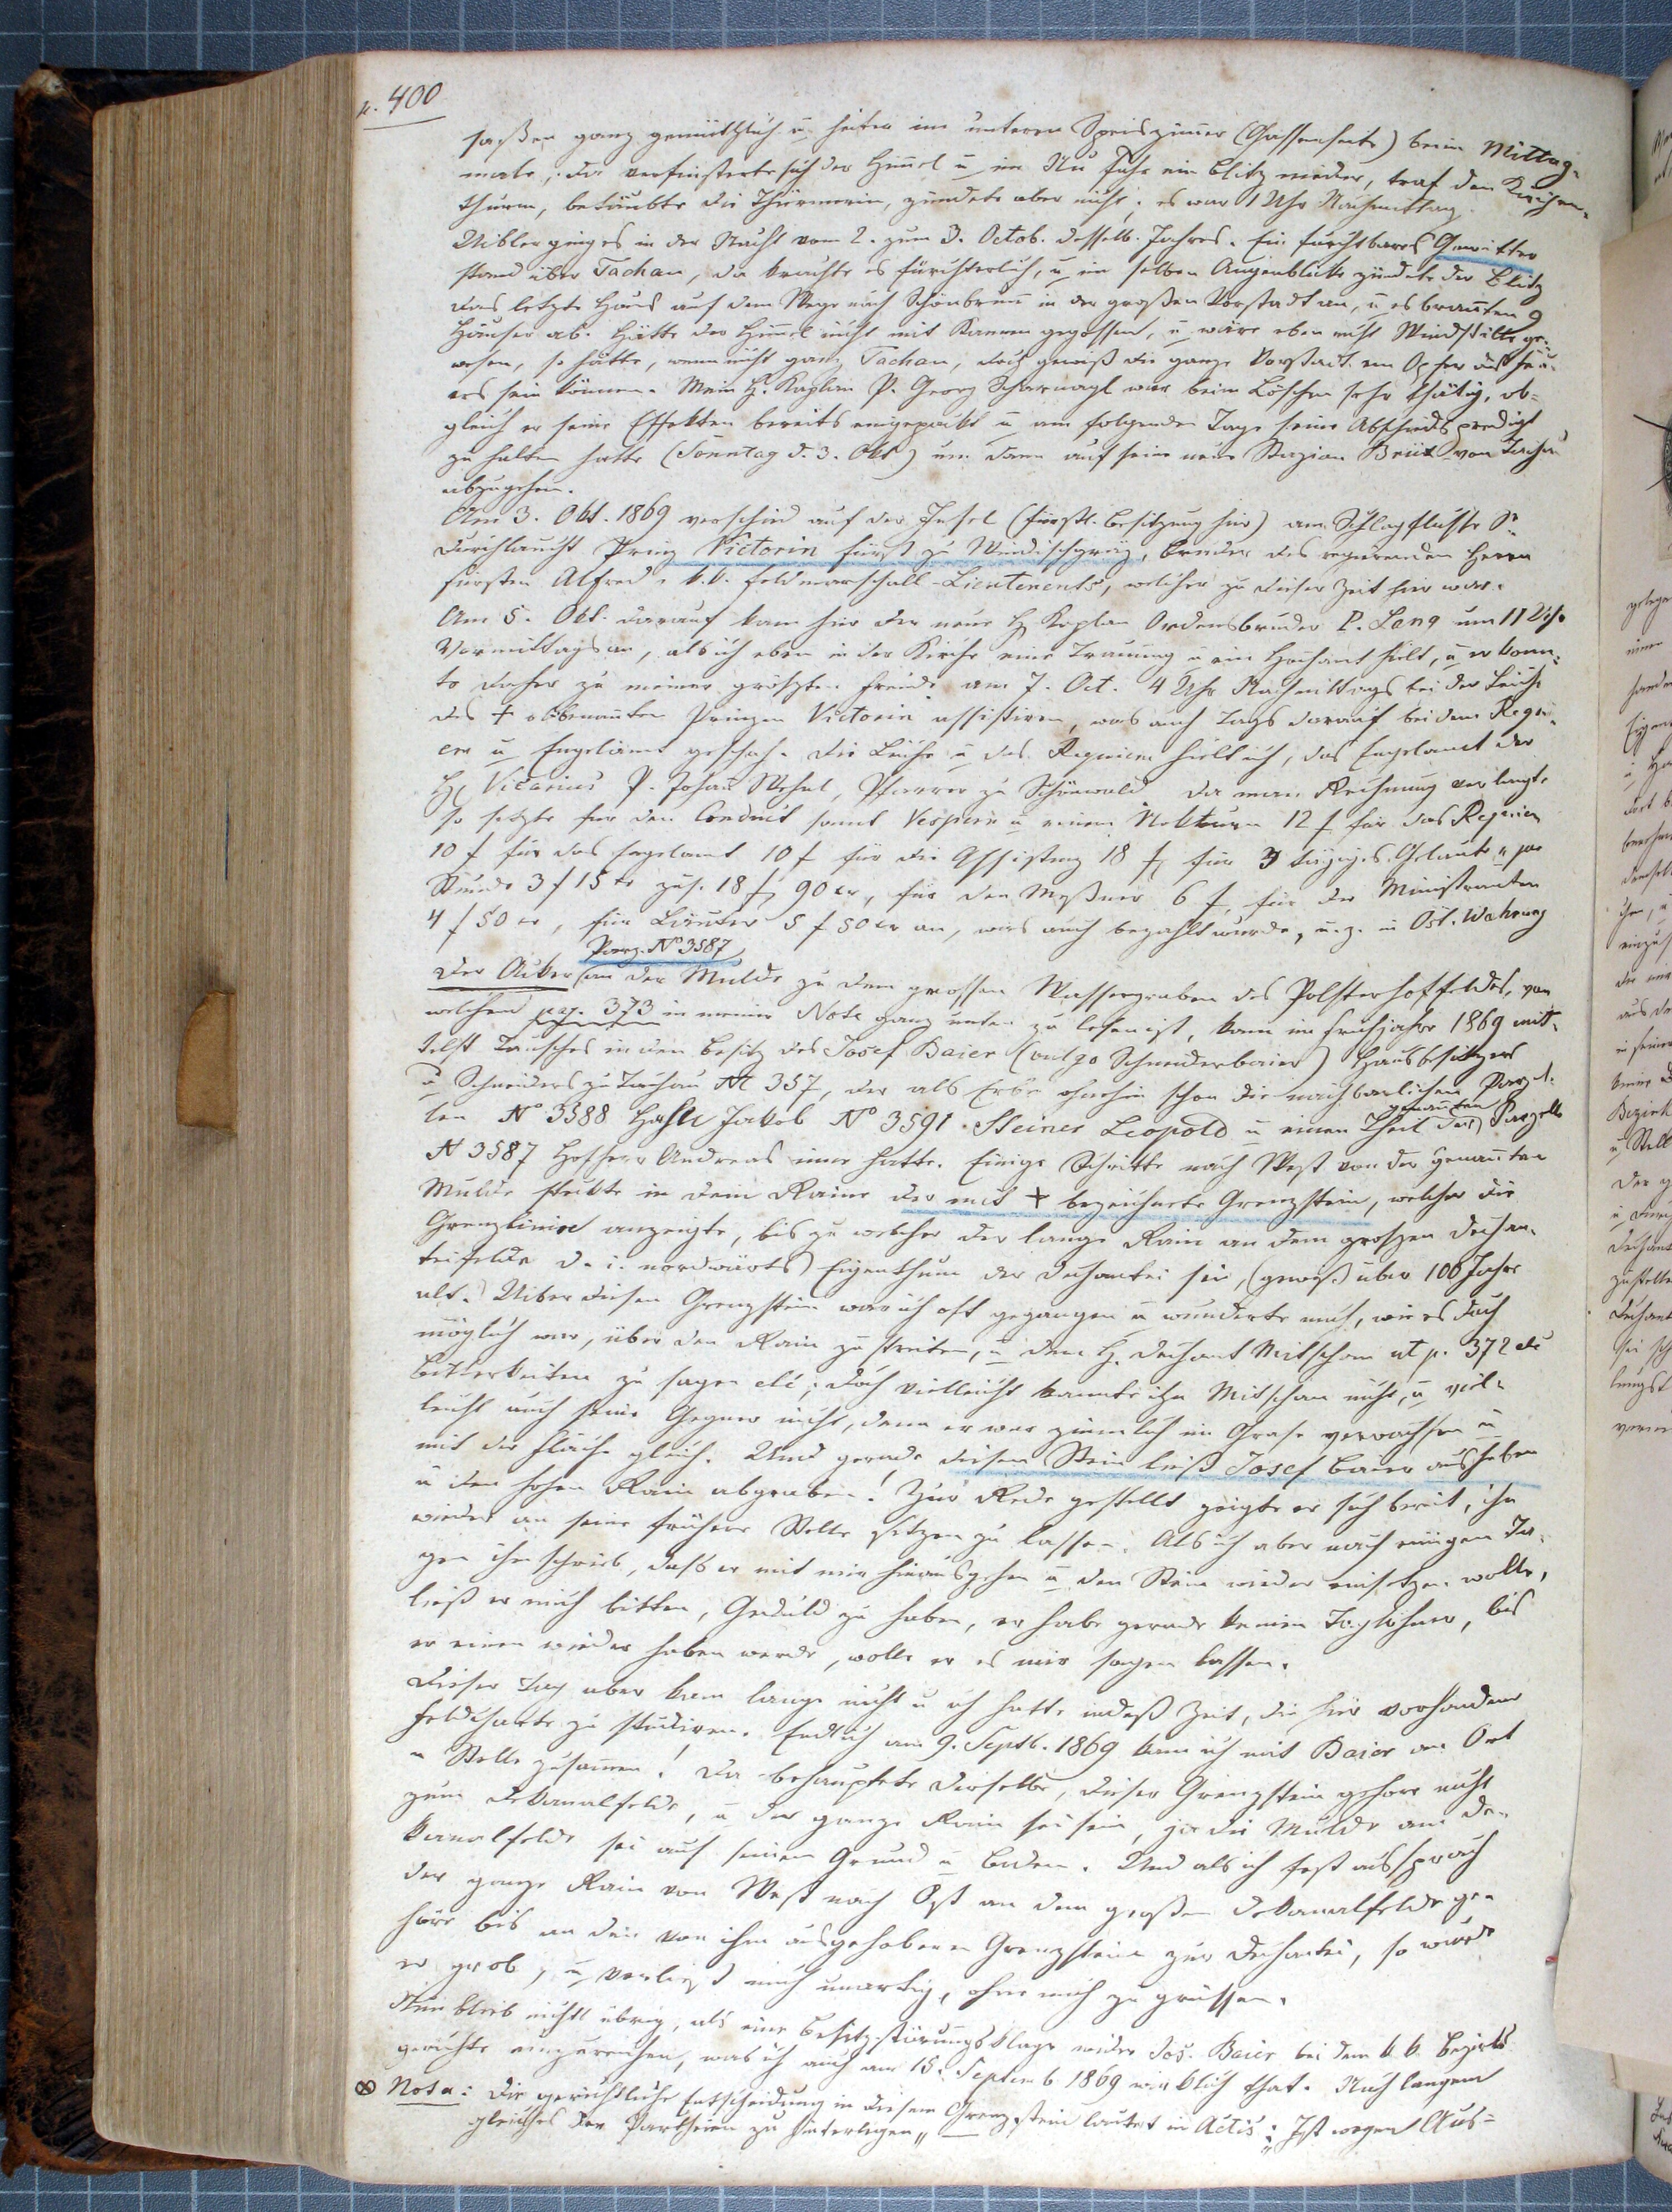 p. 400
saßen ganz gemüthlich u. heiter im unteren Speiszimer (Gassenseite) beim Mittag-
male, da verfinsterte sich der Himel u im Nu fuhr ein Blitz nieder, traf den Kirchen-
thurm, betäubte die Thürmerin, zündete aber nicht; es war 1 Uhr Nachmittag.
Uibler ging es in der Nacht vom 2. zum 3. Octob. desselb. Jahres. Ein furchtbares Gewitter
stand über Tachau, da krachte es fürchterlich, u im selben Augenblicke zündete der Blitz
das letzte Haus auf dem Wege nach Schönbrunn in der großen Vorstadt an, u es brannten 9
Häuser ab. Hätte der Himel nicht mit Kannen gegossen, u wäre eben nicht Windstille ge-
wesen, so hätte, wenn nicht ganz Tachau, doch gewiß die ganze Vorstadt ein Opfer des Feu-
ers sein können. Mein H. Kaplan P. Georg Scharnagl war beim Löschen sehr thätig, ob-
gleich er seine Effekten bereits eingepackt u am folgenden Tage seine Abschiedspredigt
zu halten hatte (Sonntag d. 3. Okt) um dann auf seine neue Stazion Brüx von Tachau
abzugehen.
Am 3. Okt. 1869 verschied auf der Insel (fürstl. Besitzung hier) am Schlagflusse Sr
Durchlaucht Prinz Victorin Fürst zu Windischgräz, Bruder des regierenden Herrn
Fürsten Alfred, k.k. Feldmarschall-Lieutenents, welcher zu dieser Zeit hier war.
Am 5. Okt. darauf kam hier der neue H Kaplan Ordensbruder P. Leng um 11 Uhr
Vormittags an, als ich eben in der Kirche eine Trauung u ein Hochamt hielt, u er konn-
te daher zu meiner größten Freude am 7. Oct. 4 Uhr Nachmittags bei der Leiche
des + obbenannten Prinzen Victorin assistiren, was auch Tags darauf bei dem Requi-
em u Engelamt geschah. Die Leiche u das Requiem hielt ich, das Engelamt der
H Vicarius P. Johan Wehal, Pfarrer zu Schönwald. Da man Rechnung verlangte
so setzte für den Conduct sammt Vesper u einem Nokturn 12 f für das Requiem
10 f für das Engelamt 10 f für die Assistenz 18 f, für 3 tägiges Geläute a pr
Stunde 3 f 15 kr zus. 18 f 90 kr, für den Meßner 6 f, für die Ministranten
4 f 50 kr, für Läuter 5 f 50 kr an, was auch bezahlt wurde, u. z. in Öst. Währung
Parz. No 3587
Der Acker an der Mulde zu dem grossen Wassergraben des Polsterhoffeldes, von
welchem pag. 373 in meiner Note ganz unten zu lesen ist, kam im Frühjahre 1869 mit-
telst Tausches in den Besitz des Josef Baier (vulgo Schneiderbaier) Hausbesitzers
u Schneiders zu Tachau N 357, der als Erbe ohnehin schon die nachbarlichen Parzel-
genannten
len No 3588 Hassl Jakob No 3591 Steiner Leopold u einen Theil der Parzelle
N 3587 Hofherr Andreas inne hatte. Einige Schritte nach West von der genannten
Mulde steckte in dem Raine der mit + bezeichnete Grenzstein, welcher die
Grenzlinie anzeigte, bis zu welcher der lange Rain an dem großen Dechan-
teifelde d. i. nordwärts Eigenthum der Dechantei sei, (gewiß über 100 Jahre
alt. Uiber diesen Grenzstein war ich oft gegangen u wunderte mich, wie es doch
möglich war, über den Rain zu streiten, u dem H. Dechant Mitscham ut p. 372 die
Bitterkeiten zu sagen etc; doch vielleicht kannte ihn Mitscham nicht, u viel-
leicht auch seine Gegner nicht, denn er war ziemlich im Grase verwachsen u
mit der Fläche gleich. Und gerade diesen Stein ließ Josef Baier ausheben
u den hohen Rain abgraben! Zur Rede gestellt zeigte er sich bereit, ihn
wieder an seine frühere Stelle setzen zu lassen. Als ich aber nach einigen Ta-
gen ihm schrieb, daß er mit mir hinausgehen u den Stein wieder einsetzen wolle,
ließ er mich bitten, Geduld zu haben, er habe gerade keinen Taglöhner, bis
er einen wieder haben werde, wolle er es mir sagen lassen.
Dieser Tag aber kam lange nicht u ich hatte indeß Zeit, die hier vorhandene
Feldcharte zu studiren. Endlich am 9. Septb. 1869 kam ich mit Baier an Ort
u Stelle zusamen! Da behauptete derselbe, dieser Grenzstein gehöre nicht
zum Dekanalfelde, u der ganze Rain sei sein, ja die Mulde am De-
kanalfelde sei auf seinem Grund u Boden. Und als ich fest aussprach
der ganze Rain von West nach Ost an dem großen Dekanalfelde ge-
höre bis an den von ihm ausgehobenen Grenzstein zur Dechantei, so wurde
er grob, u verließ mich unartig, ohne mich zu grüssen.
Nun blieb nichts übrig, als eine Besitzstörungsklage wider Jos. Baier bei dem k. k. Bezirks-
gerichte einzureichen, was ich auch am 15. Septemb 1869 wirklich that. Nach langem
⊗ Nota: Die gerichtliche Entscheidung in diesem Grenzstein lautet in Actis: „Ist wegen Aus-
gleiches der Partheien zu hinterlegen"